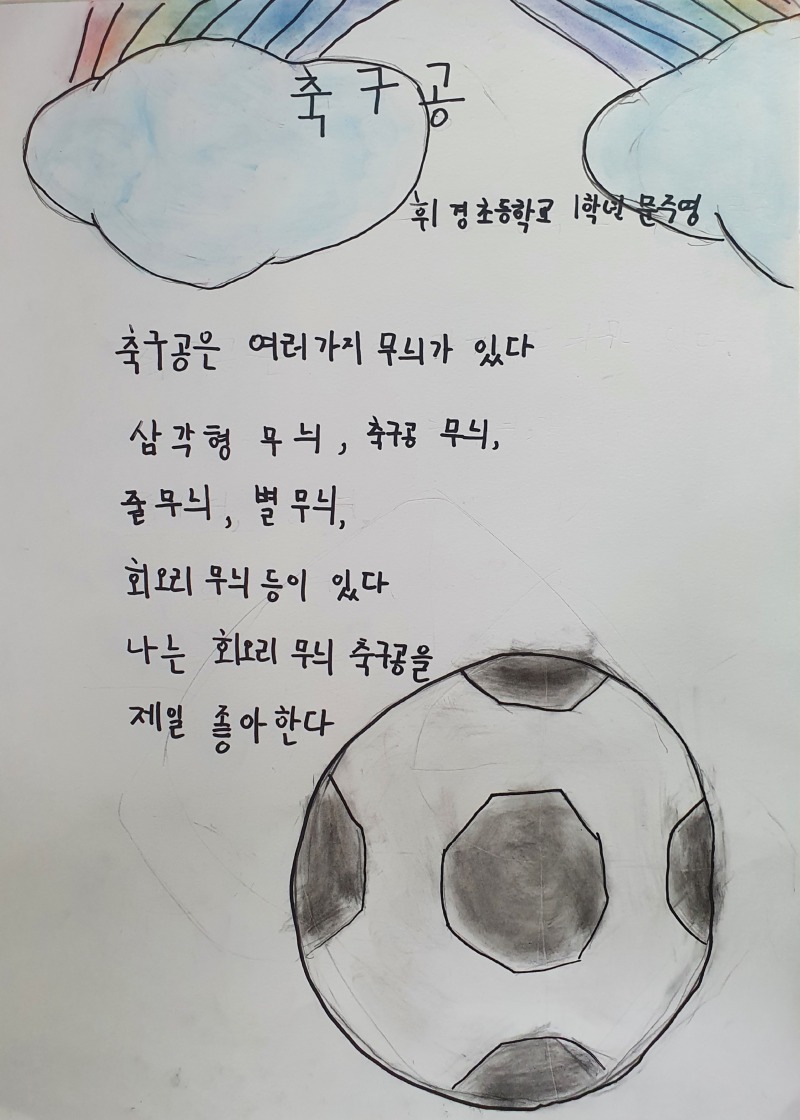 축구공
휘경초등학교 1학년 문주영
축구공은 여러가지 무늬가 있다
삼각형 무늬, 축구공 무늬,
줄무늬, 별무늬,
회오리 무늬 등이 있다
나는 회오리 무늬 축구공을
제일 좋아한다